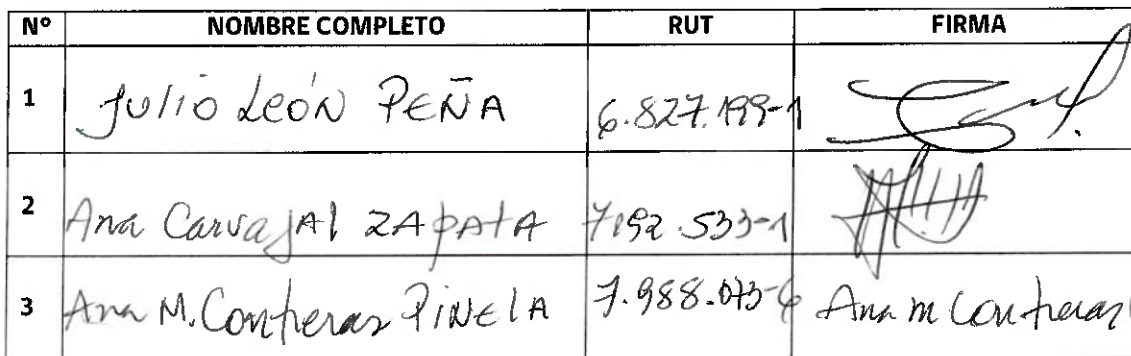 Nº NOMBRE COMPLETO RUT FIRMA
1 Julio León PEÑA 6.827.199-1
2 Ana CarvajAl ZApAtA 7.192.533-1
3 Ana M. Contreras PiNElA 7.988.073-6 Ana m Contreras